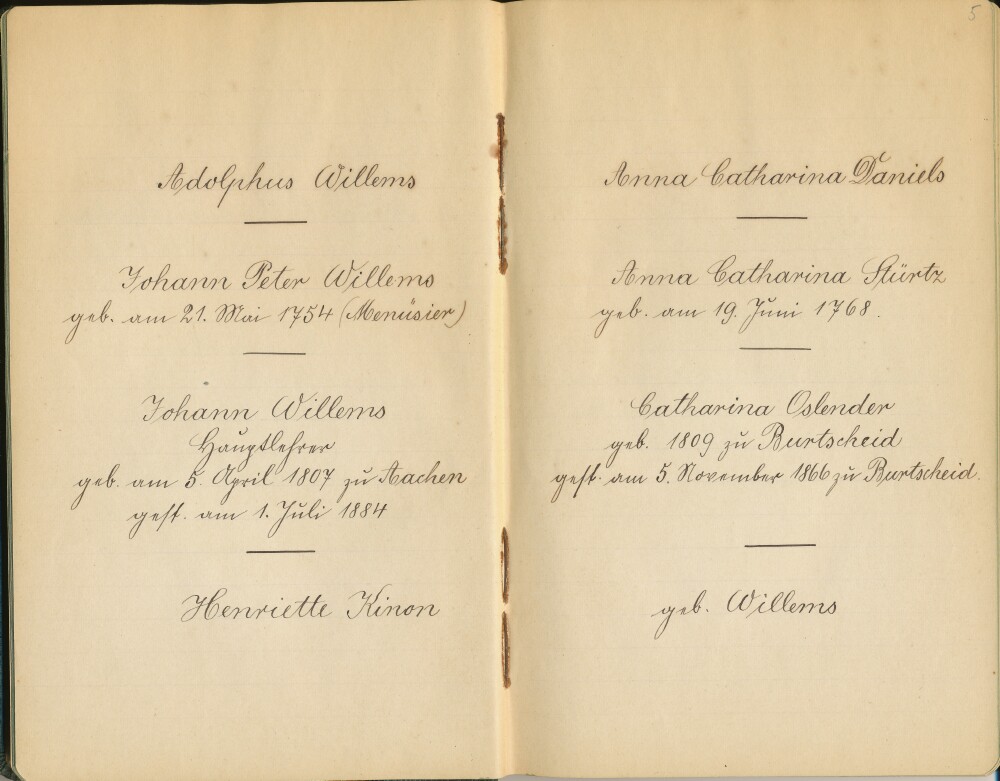 Adolphus Willems
Johann Peter Willems
geb. am 21. Mai 1754 (Menüsier)
Johann Willems
Hauptlehrer
geb. am 5. April 1807 zu Aachen
gest. am 1. Juli 1884
Henriette Kinon
5
Anna Catharina Daniels
Anna Catharina Stürtz
geb. am 19. Juni 1768.
Catharina Oslender
geb. 1809 zu Burtscheid
gest. am 5. November 1866 zu Burtscheid.
geb. Willems